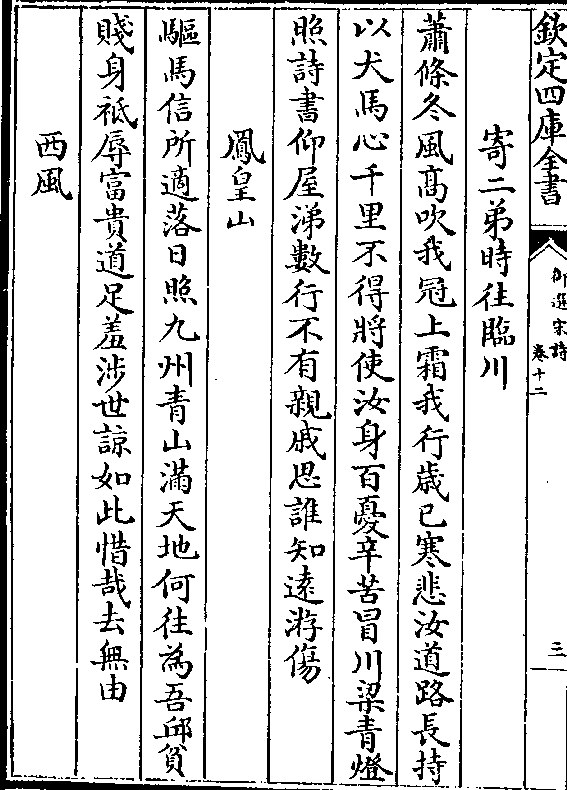 欽定四庫全書
御選宋詩
卷十二
三
寄二弟時往臨川
蕭條冬風髙吹我冠上霜我行歲已寒悲汝道路長持
以犬馬心千里不得將使汝身百憂辛苦冒川梁青燈
照詩書仰屋涕數行不有親戚思誰知遠游傷
鳳皇山
驅馬信所適落日照九州青山滿天地何往為吾邱貧
賤身祗辱富貴道足羞涉世諒如此惜哉去無由
西風